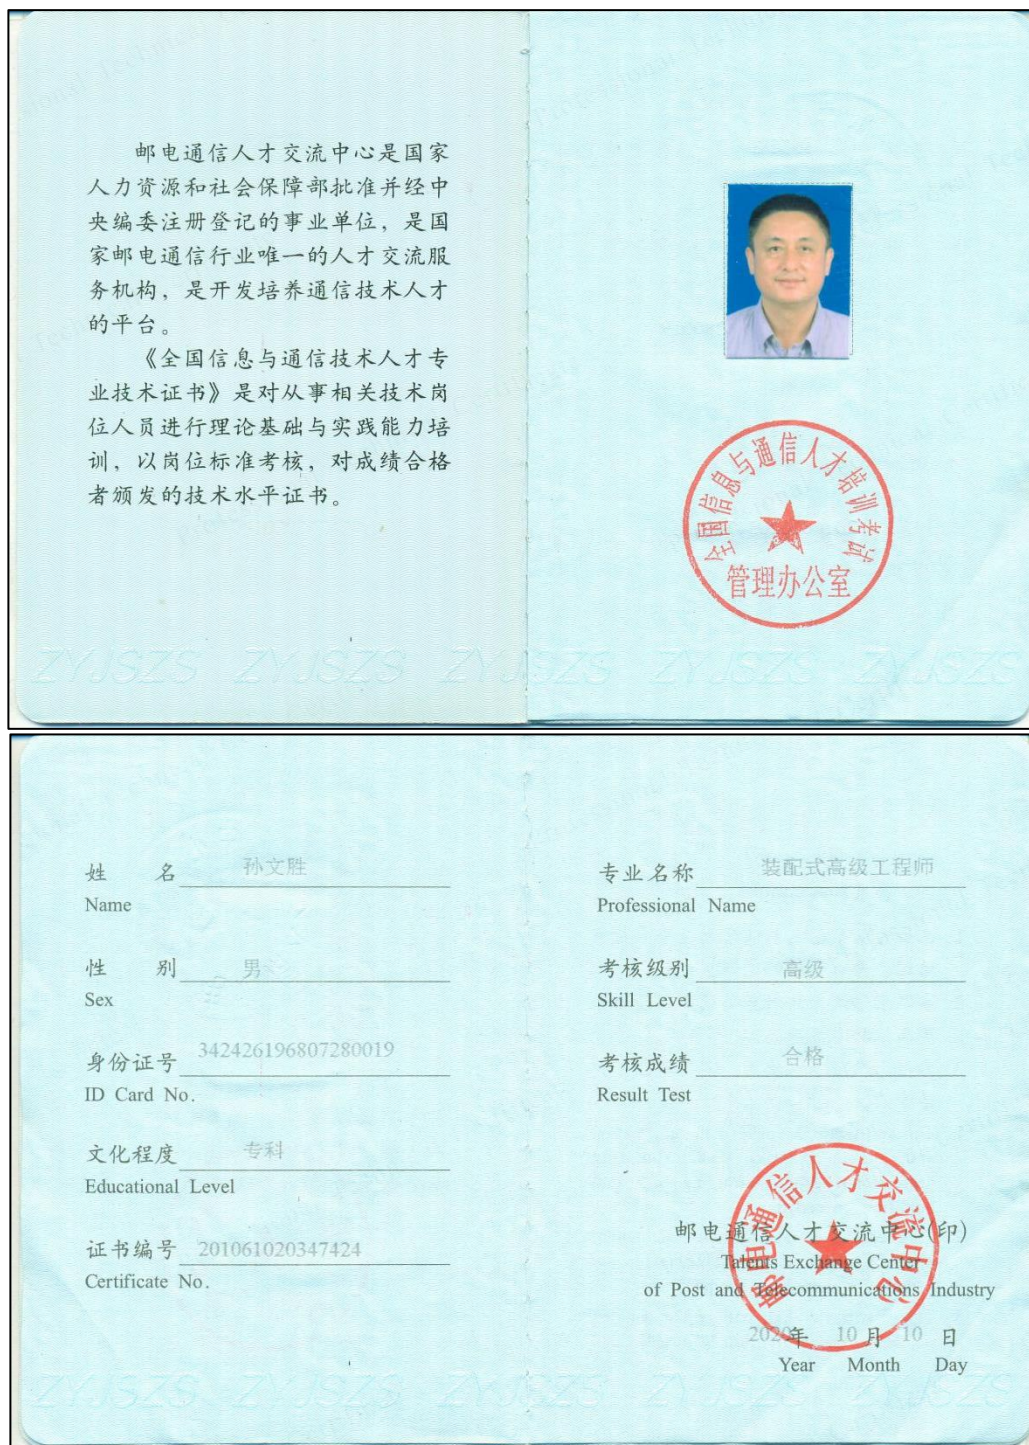 邮电通信人才交流中心是国家
人力资源和社会保障部批准并经中
央编委注册登记的事业单位，是国
家邮电通信行业唯一的人才交流服
务机构，是开发培养通信技术人才
的平台。
《全国信息与通信技术人才专
业技术证书》是对从事相关技术岗
位人员进行理论基础与实践能力培
训，以岗位标准考核，对成绩合格
者颁发的技术水平证书。
全国信息与通信人才培训考试
管理办公室
ZYJSZS ZYJSZS ZYJSZS ZYJSZS ZYJSZS
姓 名 孙文胜
Name
性 别 男
Sex
身份证号 342426196807280019
ID Card No.
文化程度 专科
Educational Level
证书编号 201061020347424
Certificate No.
专业名称 装配式高级工程师
Professional Name
考核级别 高级
Skill Level
考核成绩 合格
Result Test
邮电通信人才交流中心
邮电通信人才交流中心(印)
Talents Exchange Center
of Post and Telecommunications Industry
2020年 10月 10日
Year Month Day
ZYJSZS ZYJSZS ZYJSZS ZYJSZS ZYJSZS